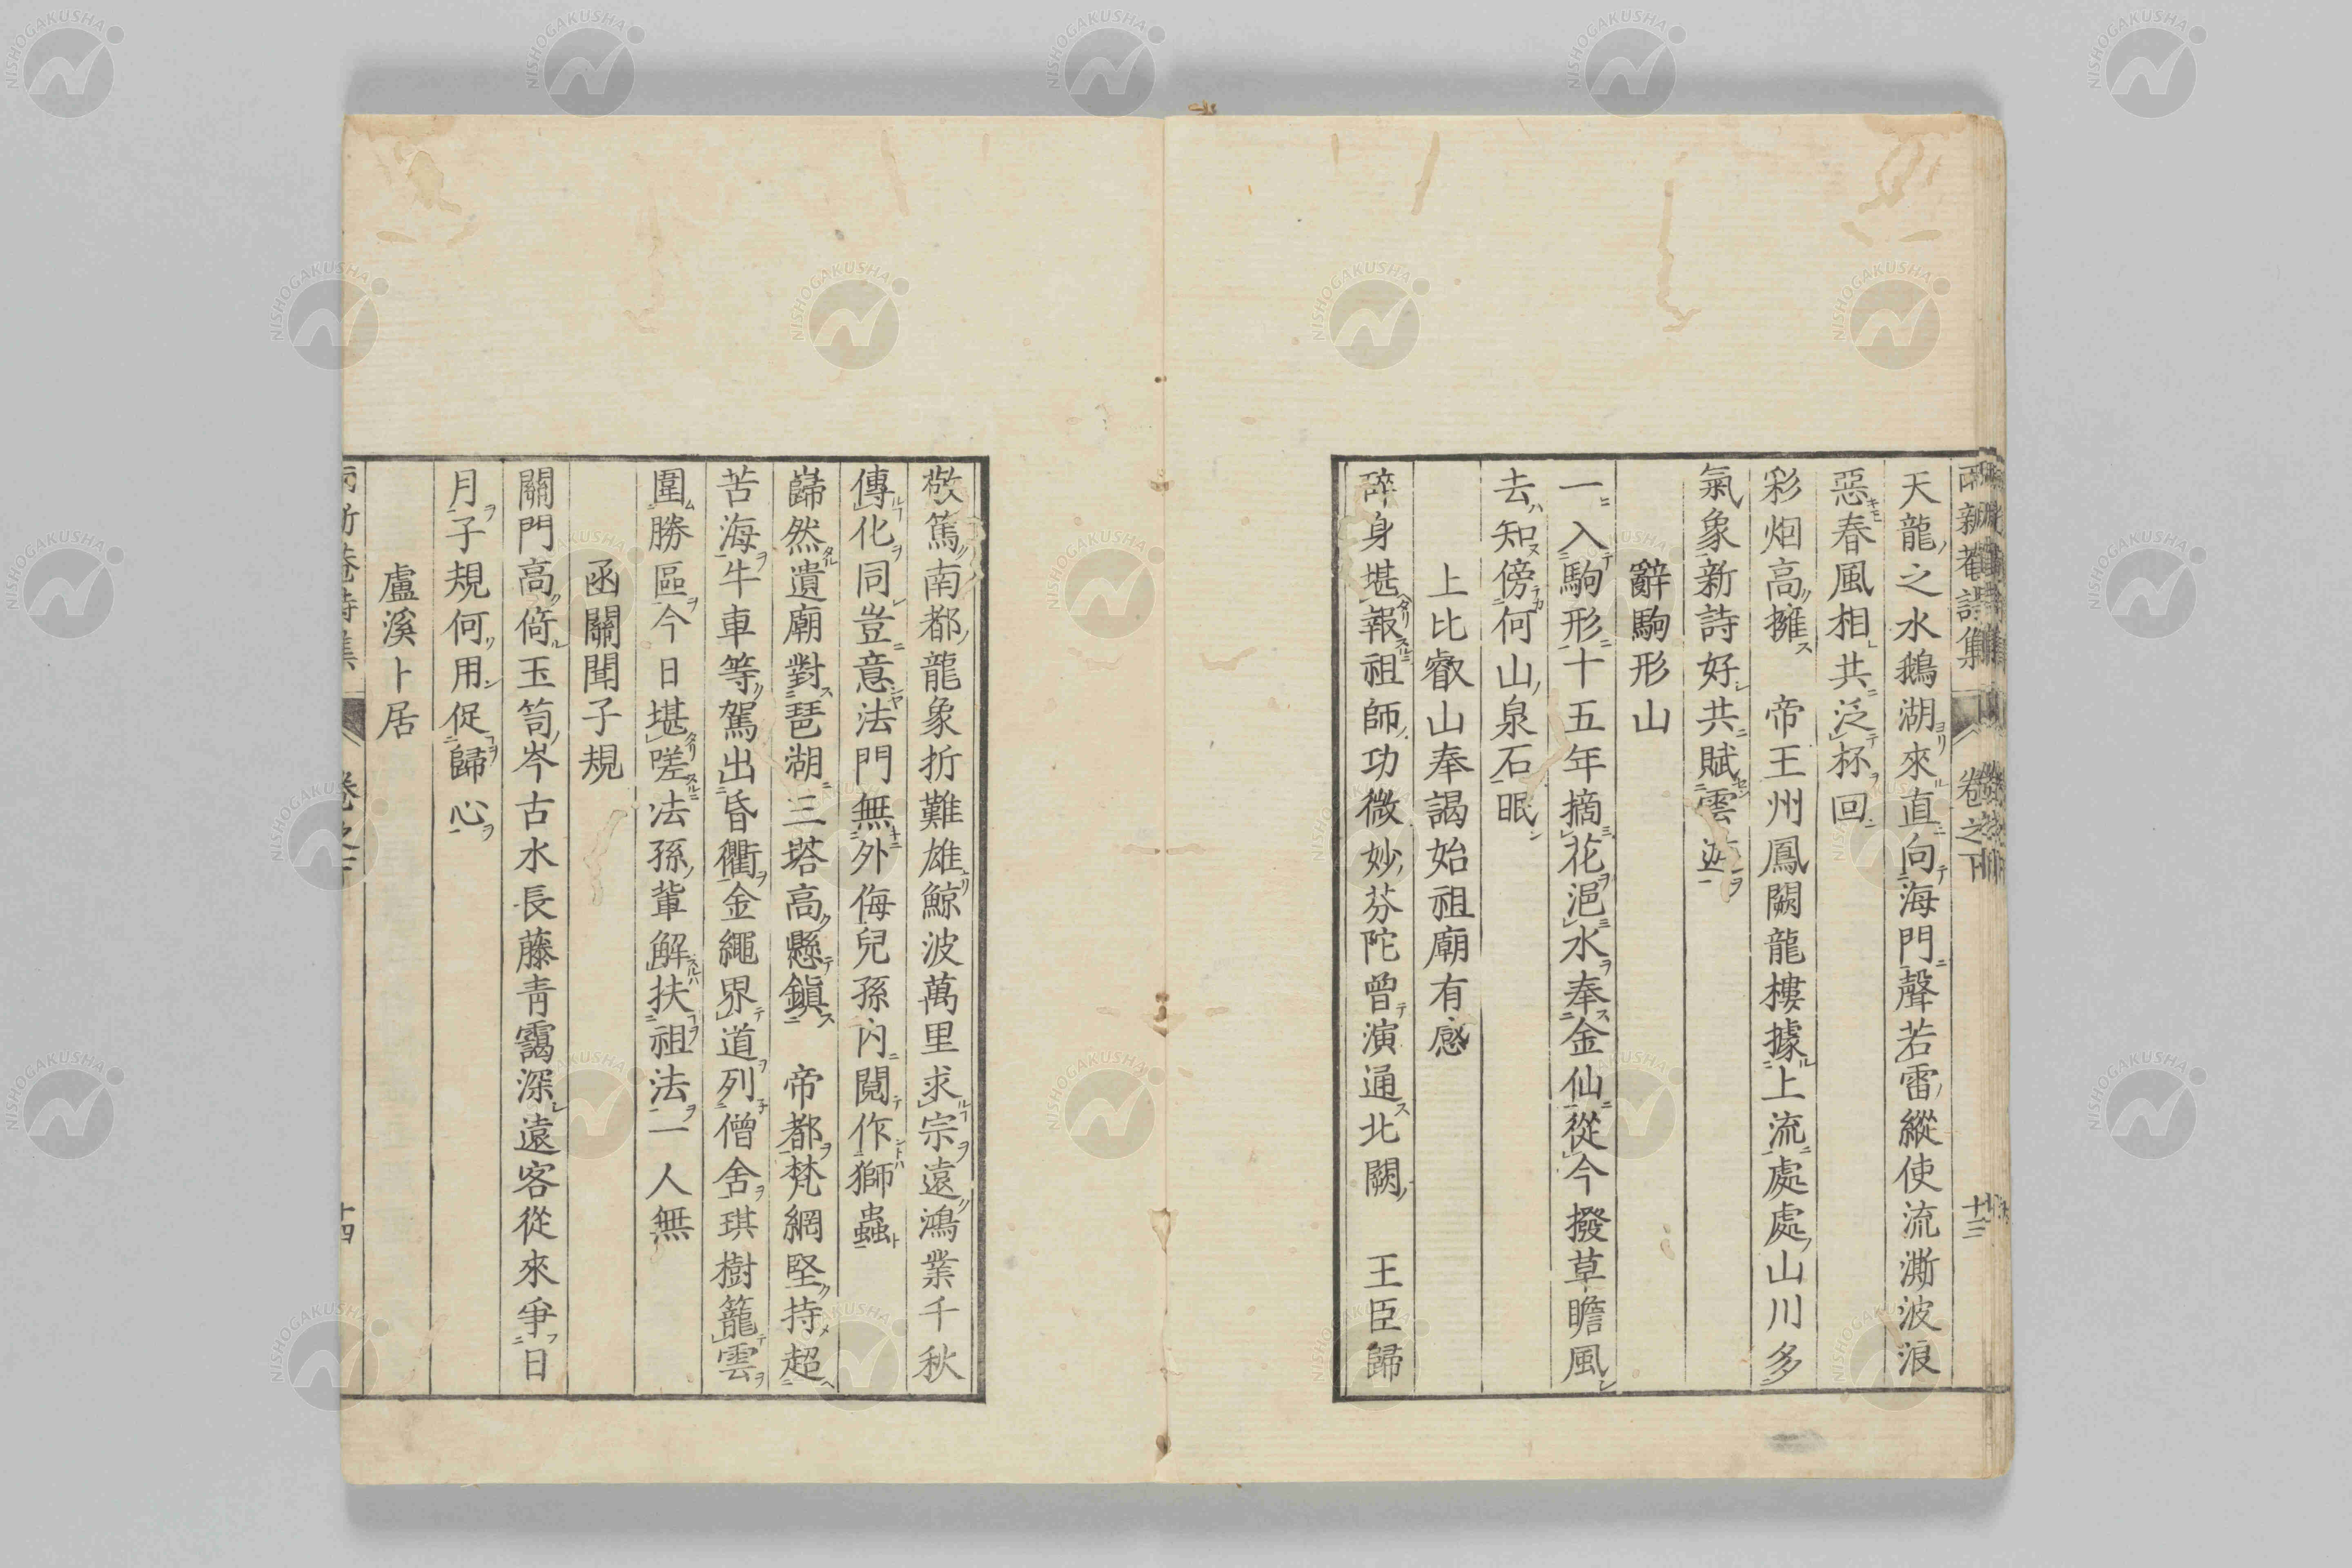 天龍之水鵝湖來直向海門聲若雷縱使流澌波浪
惡春風相共泛杯回
彩烟高擁　帝王州鳳闕龍樓據上流處處山川多
氣象新詩好共賦雲遊
辭駒形山
一入駒形十五年摘花浥水奉金仙從今撥草瞻風
去知傍何山泉石眠
上比叡山奉謁始祖廟有感
碎身堪報祖師功微妙芬陀曾演通北闕　王臣歸
敬篤南都龍象折難雄鯨波萬里求宗遠鴻業千秋
傳化同豈意法門無外侮兒孫内鬩作獅蟲
巋然遺廟對琶湖三塔高懸鎭　帝都梵網堅持超
苦海牛車等駕出昏衢金繩界道列僧舍琪樹籠雲
圍勝區今日堪嗟法孫輩解扶祖法一人無
函關聞子規
關門高倚玉笥岑古水長藤青靄深遠客從來爭日
月子規何用促歸心
盧溪卜居
卷之下
十三
十四
NISHOGAKUSHA